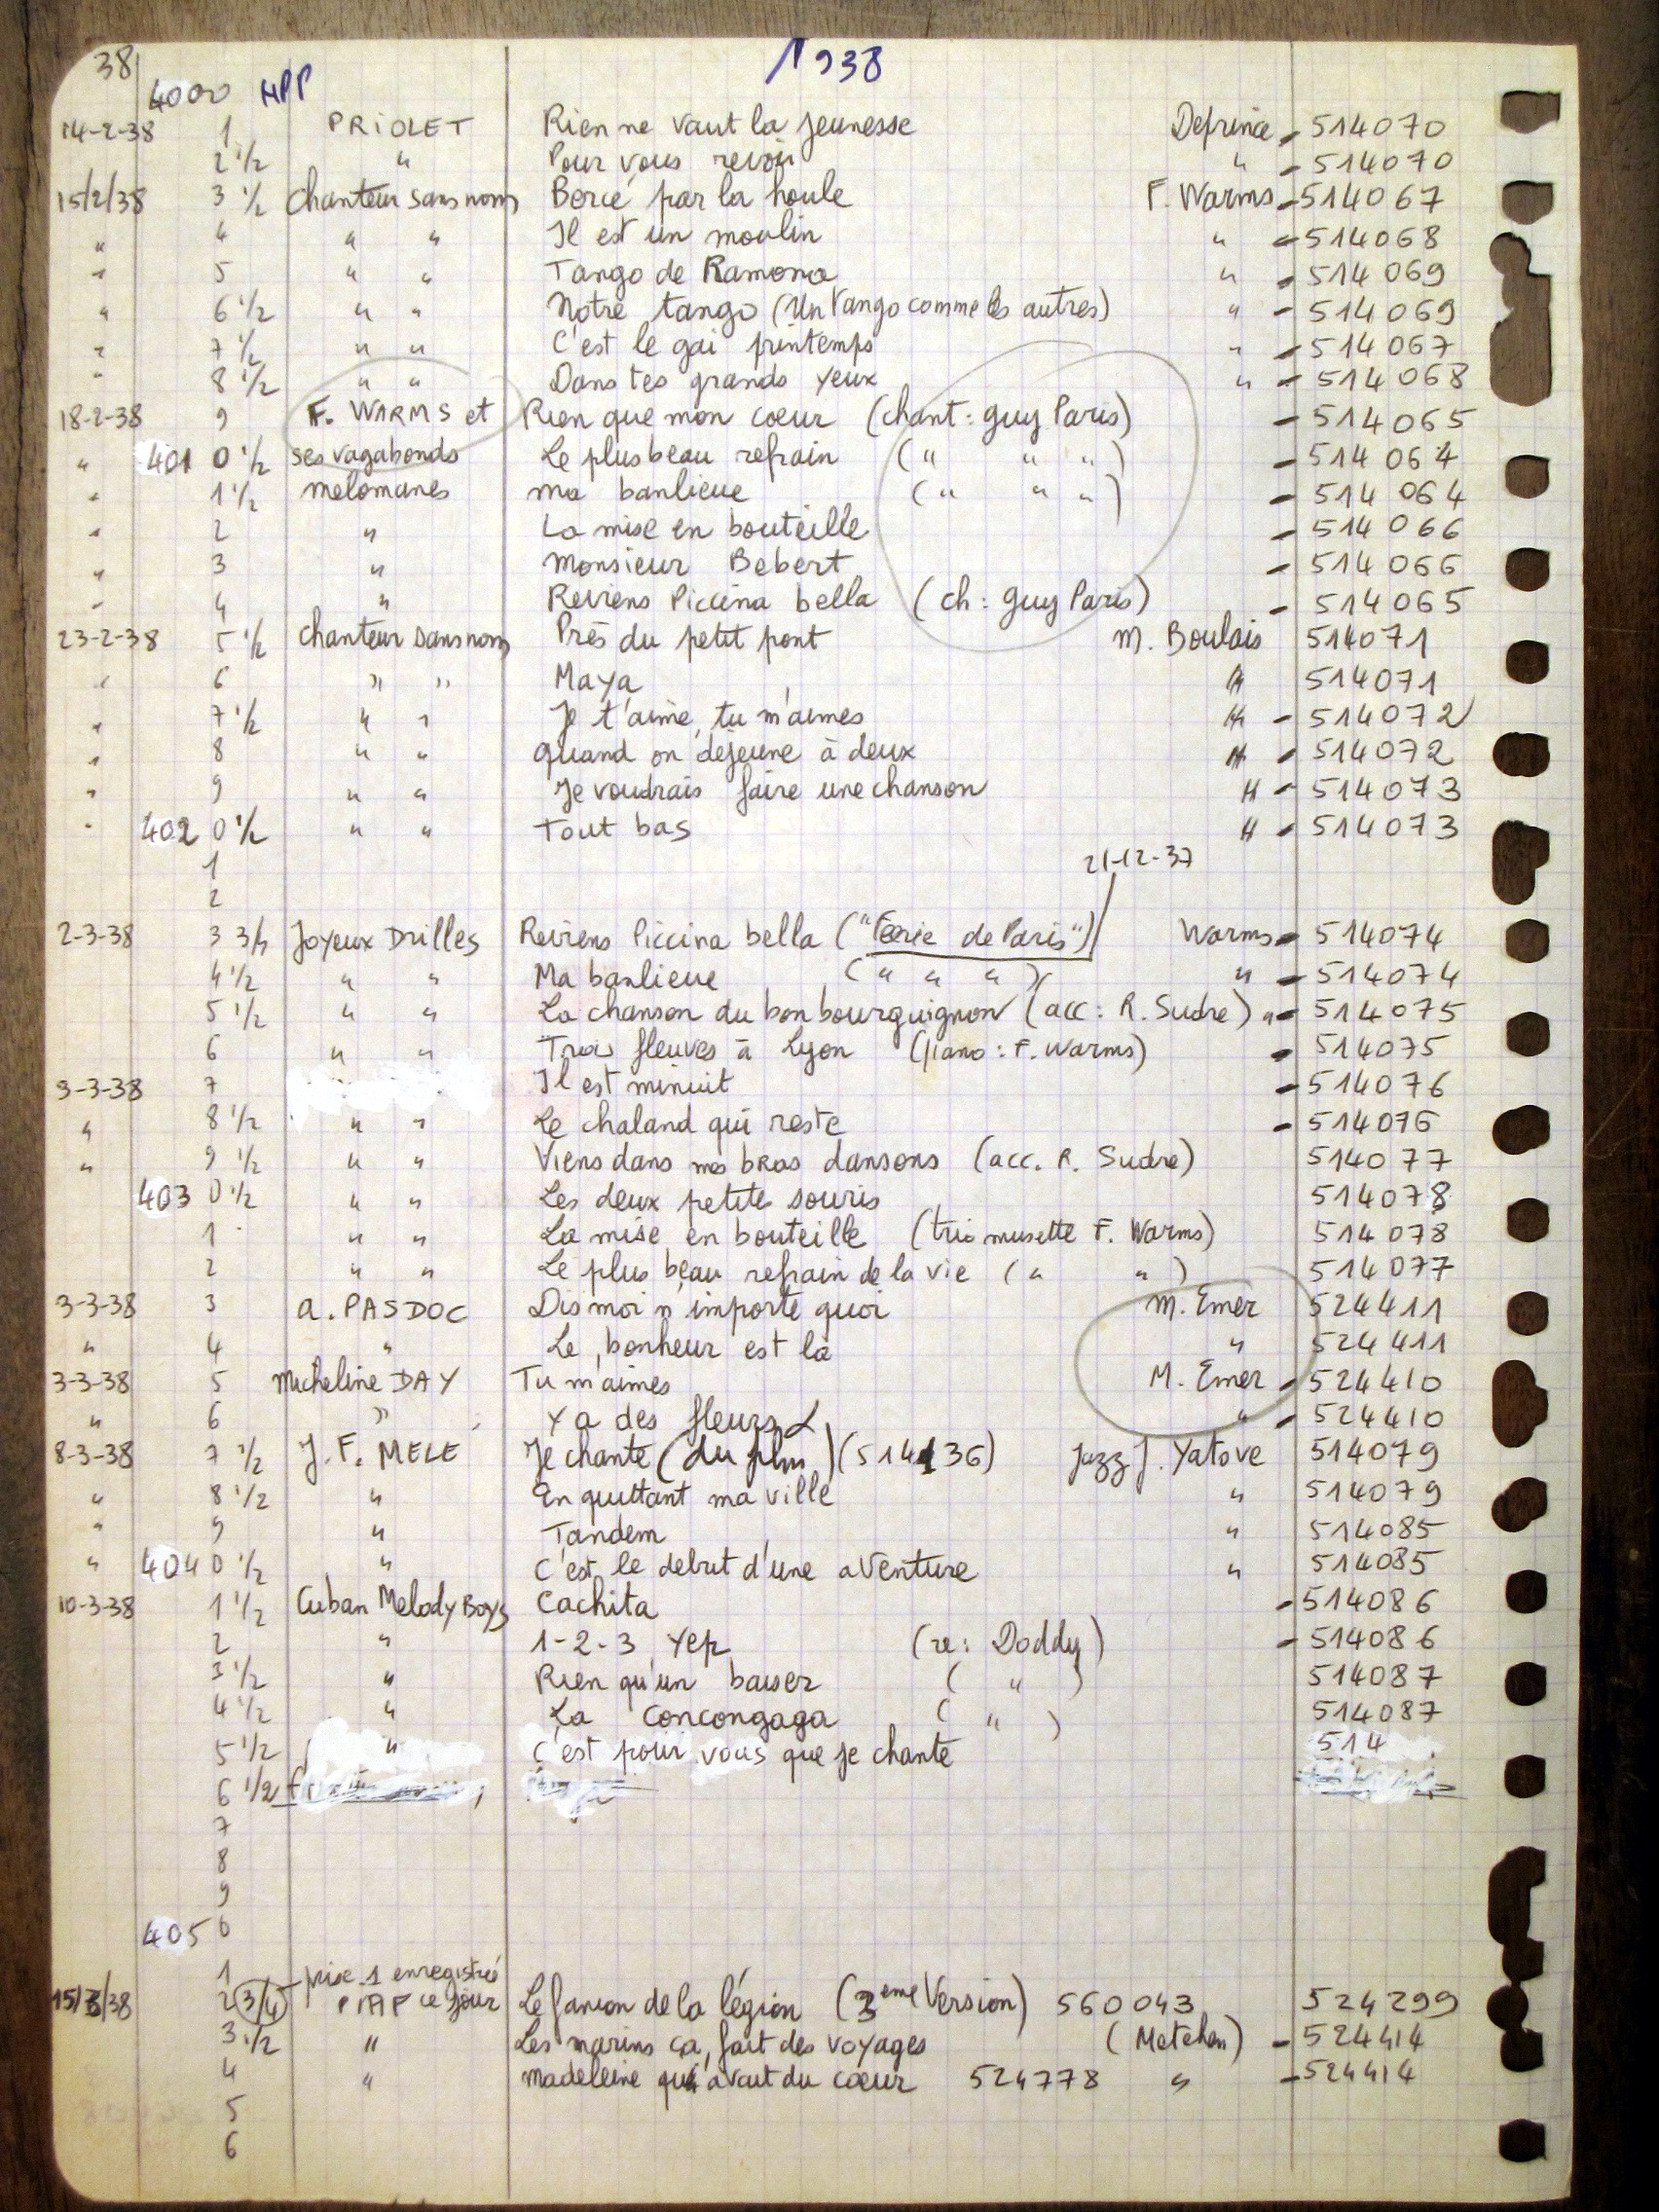 38 1938
4000 HPP
14-2-38 1 PRIOLET Rien ne vaut la jeunesse Deprince - 514070
2 1/2 " Pour vous revoir " - 514070
15/2/38 3 1/2 Chanteur sans nom Bercé par la houle F. Warms - 514067
" 4 " " Il est un moulin " - 514068
" 5 " " Tango de Ramona " - 514069
" 6 1/2 " " Notre tango (Un tango comme les autres) " - 514069
" 7 1/2 " " C'est le gai printemps " - 514067
" 8 1/2 " " Dans tes grands yeux " - 514068
18-2-38 9 F. WARMS et Rien que mon coeur (chant : guy Paris) - 514065
" 401 0 1/2 ses vagabonds Le plus beau refrain (" " ") - 514064
" 1 1/2 melomanes ma banlieue (" " ") - 514064
" 2 " La mise en bouteille - 514066
" 3 " Monsieur Bebert - 514066
" 4 " Reviens Piccina bella (ch : guy Paris) - 514065
23-2-38 5 1/2 Chanteur sans nom Près du petit pont M. Boulais 514071
" 6 " " Maya " 514071
" 7 1/2 " " Je t'aime, tu m'aimes " - 514072
" 8 " " quand on déjeune à deux " - 514072
" 9 " " Je voudrais faire une chanson " - 514073
" 402 0 1/2 " " Tout bas " - 514073
1 21-12-37
2
2-3-38 3 3/4 Joyeux Drilles Reviens Piccina bella ("Féerie de Paris") Warms - 514074
4 1/2 " " Ma banlieue (" " ") " - 514074
5 1/2 " " La chanson du bon bourguignon (acc : R. Sudre) " - 514075
6 " " Trois fleuves à Lyon (piano : F. Warms) - 514075
3-3-38 7 Il est minuit - 514076
" 8 1/2 " " Le chaland qui reste - 514076
" 9 1/2 " " Viens dans mes bras dansons (acc. R. Sudre) 514077
403 0 1/2 " " Les deux petites souris 514078
1 " " La mise en bouteille (trio musette F. Warms) 514078
2 " " Le plus beau refrain de la vie (" ") 514077
3-3-38 3 a. PASDOC Dis moi n'importe quoi M. Emer 524411
" 4 " Le bonheur est là " 524411
3-3-38 5 Micheline DAY Tu m'aimes M. Emer - 524410
" 6 " Y a des fleurs " - 524410
8-3-38 7 1/2 J. F. MELE Je chante (du plm) (514136) Jazz J. Yatove 514079
" 8 1/2 " En quittant ma ville " 514079
" 9 " Tandem " 514085
" 404 0 1/2 " C'est le debut d'une aventure " 514085
10-3-38 1 1/2 Cuban Melody Boys Cachita - 514086
2 " 1-2-3 Yep (re : Doddy) - 514086
3 1/2 " Rien qu'un baiser ( " ) 514087
4 1/2 " La Concongaga ( " ) 514087
5 1/2 " C'est pour vous que je chante 514
6 1/2
7
8
9
405 0
1 prise 1 enregistrée
15/3/38 2 (3/4) PIAF ce jour Le fanion de la légion (3eme Version) 560043 524299
3 1/2 " Les marins ça fait des voyages (Metehen) - 524414
4 " Madeleine qui avait du cœur 524778 " - 524414
5
6